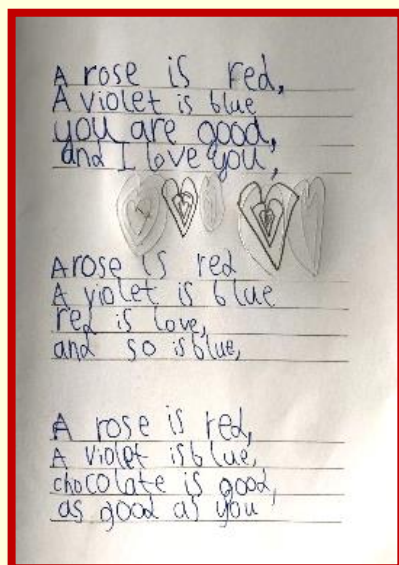 A rose is red,
A violet is blue
you are good,
and I love you,
A rose is red
A violet is blue
red is love,
and so is blue,
A rose is red,
A violet is blue,
chocolate is good,
as good as you